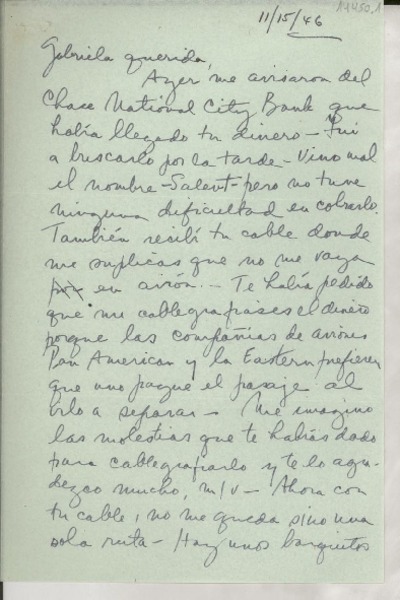 11/15/46
Gabriela querida,
Ayer me avisaron del
Chace National City Bank que
había llegado tu dinero - Fui
a buscarlo por la tarde - Vino mal
el nombre - Salent - pero no tuve
ninguna dificultad en cobrarlo.
También recibí tu cable donde
me suplicas que no me vaya
en avión. - Te había pedido
que me cablegrafiases el dinero
porque las compañías de aviones
Pan American y la Eastern prefieren
que uno pague el pasaje al
irlo a separar - Me imagino
las molestias que te habías dado
para cablegrafiarlo y te lo agra-
dezco mucho, m/v - Ahora con
tu cable, no me queda sino una
sola ruta - Hay unos barquitos